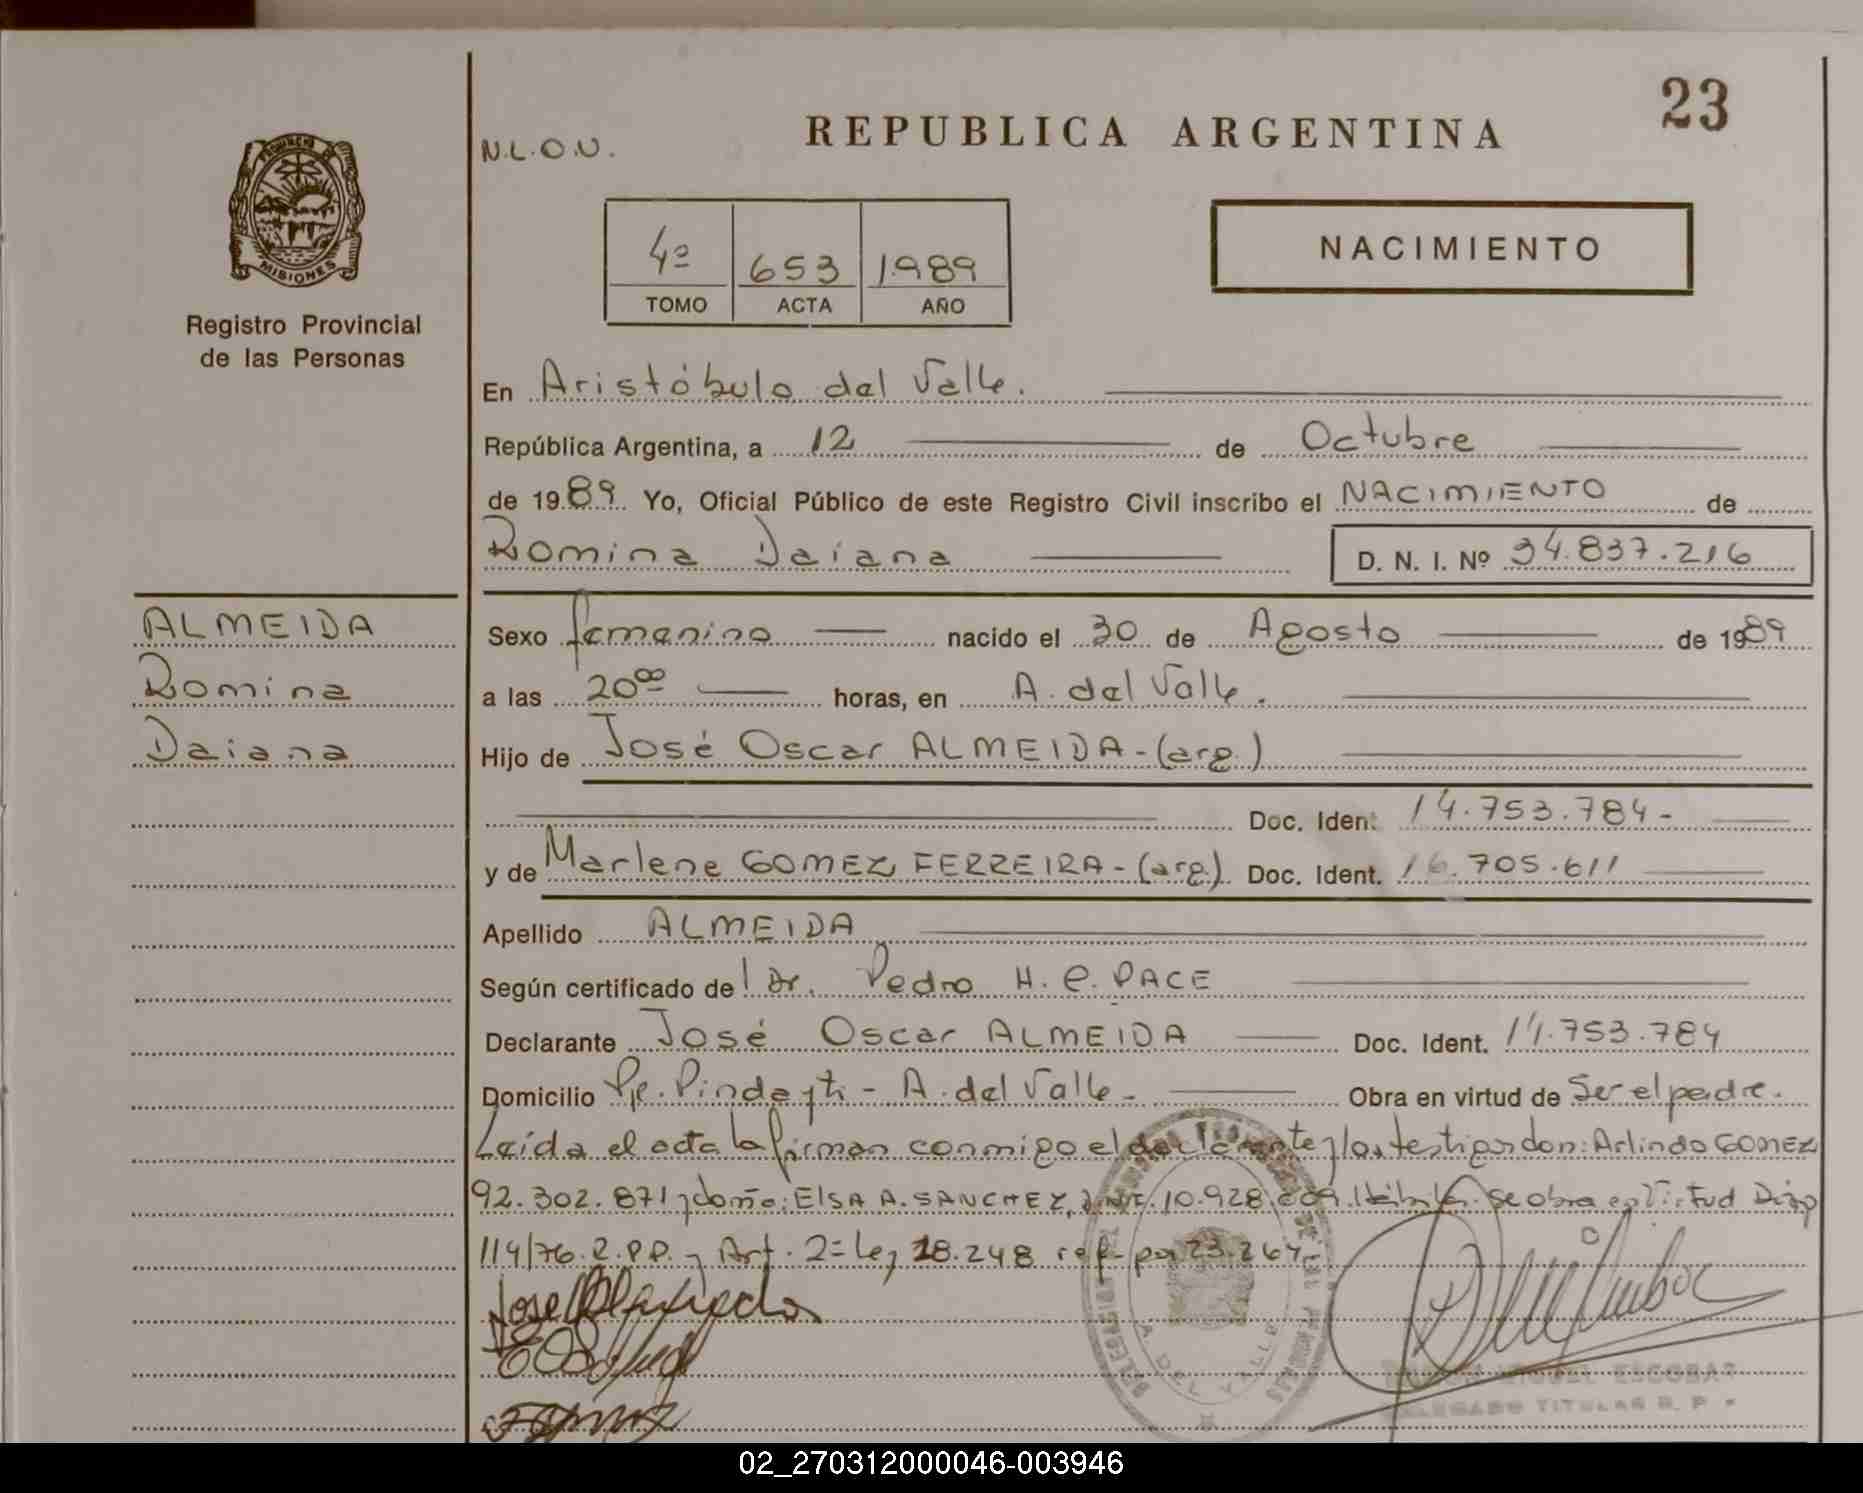 23
N.L.O.N.
REPUBLICA ARGENTINA
PROVINCIA DE
MISIONES
Registro Provincial
de las Personas
4º 653 1989
TOMO ACTA AÑO
NACIMIENTO
En Aristóbulo del Valle.
República Argentina, a 12 de Octubre
de 1989 Yo, Oficial Público de este Registro Civil inscribo el NACIMIENTO de
Romina Daiana D. N. I. Nº 34.837.216
ALMEIDA
Romina
Daiana
Sexo femenino nacido el 30 de Agosto de 1989
a las 20⁰⁰ horas, en A. del Valle.
Hijo de José Oscar ALMEIDA-(arg.)
Doc. Ident. 14.753.784-
y de Marlene GOMEZ FERREIRA-(arg.) Doc. Ident. 16.705.611
Apellido ALMEIDA
Según certificado del Dr. Pedro H. C. PACE
Declarante José Oscar ALMEIDA Doc. Ident. 14.753.784
Domicilio Pje. Pindayti - A. del Valle- Obra en virtud de Ser el padre.
Leída el acta la firman conmigo el declarante y los testigos don: Arlindo GOMEZ
92.302.871 y doña: Elsa A. SANCHEZ, 10.928. Se obra en Virtud Disp
114/76. R.P.P. y Art. 2= Ley 18.248 ref. por 23.264
DELEGACION DE LAS PERSONAS
A. DEL VALLE
MIGUEL ESCOBAR
DELEGADO TITULAR R. P.
02_270312000046-003946